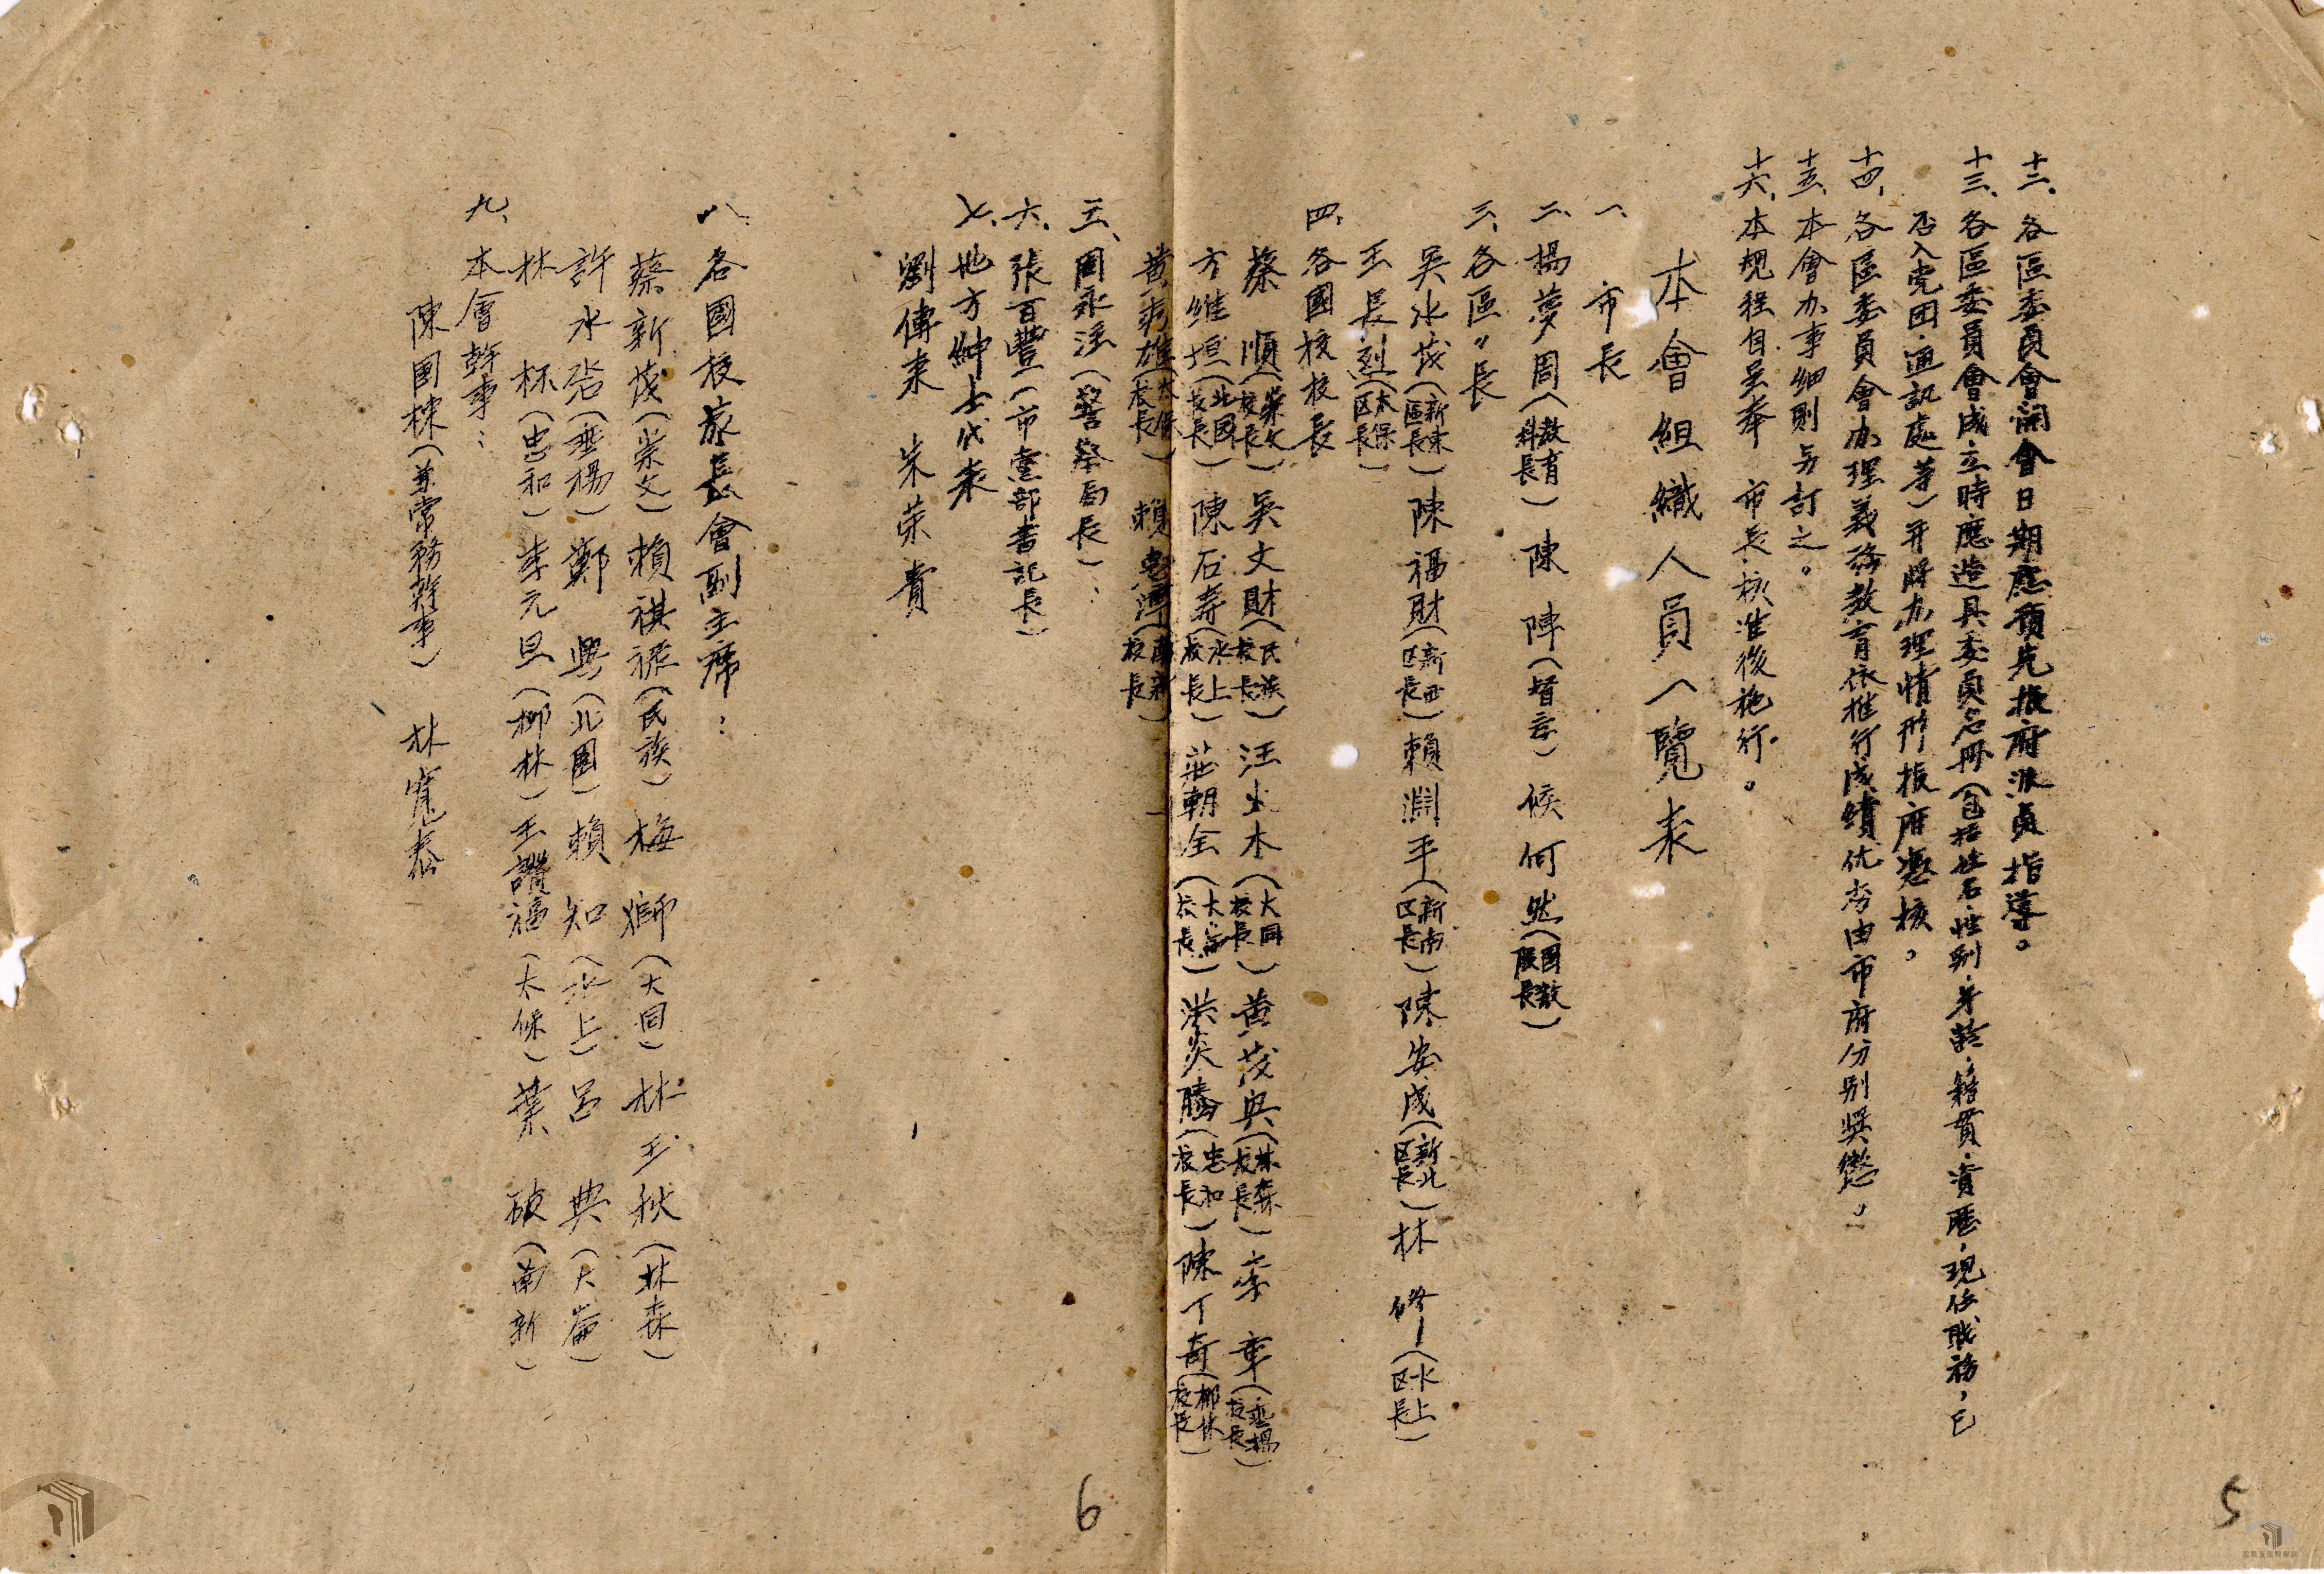 十二、各區委員會開會日期應預先報府派員指導。
十三、各區委員會成立時應造具委員名冊（包括姓名、性別、年齡、籍貫、資歷，現任職務，已
否入党团、通訊處等）并將办理情形报府憑核。
十四、各區委員會办理義務教育依推行成績优劣由市府分別奬懲。
十五、本會办事細則另訂之。
十六、本規程自呈奉　市長核准後施行。
本會組織人員一覽表
一、市長
二、楊夢周（教育科長）陳　陣（督学）候何然（國教股長）
三、各區〃長
吳水茂（新東區長）陳福財（新西区長）賴淵平（新南区長）陳安成（新北区長）林　修（水上区長）
王長烈（太保区長）
四、各國校校長
蔡　順（崇文校長）吳文財（民族校長）汪出木（大同校長）黄茂興（林森校長）李　章（垂楊校長）
方維垣（北國校長）陳石壽（水上校長）莊朝全（大崙校長）洪炎騰（忠和校長）陳丁奇（柳林校長）
黄秀雄（太保校長）賴（南新校長）
五、周永（警察局長）：
六、張百豐（市黨部書記長）
七、地方紳士代表
劉傳來　朱荣貴
八、各國校家長會副主席：
蔡新茂（崇文）賴祺（民族）梅　獅（大同）林玉秋（林森）
許水（垂楊）鄭　興（北國）賴　知（水上）呂　典（大崙）
林　杯（忠和）李元旦（柳林）王讚福（太保）葉　破（南新）
九、本會幹事：
陳国樑（兼常務幹事）　林寬泰
5
6